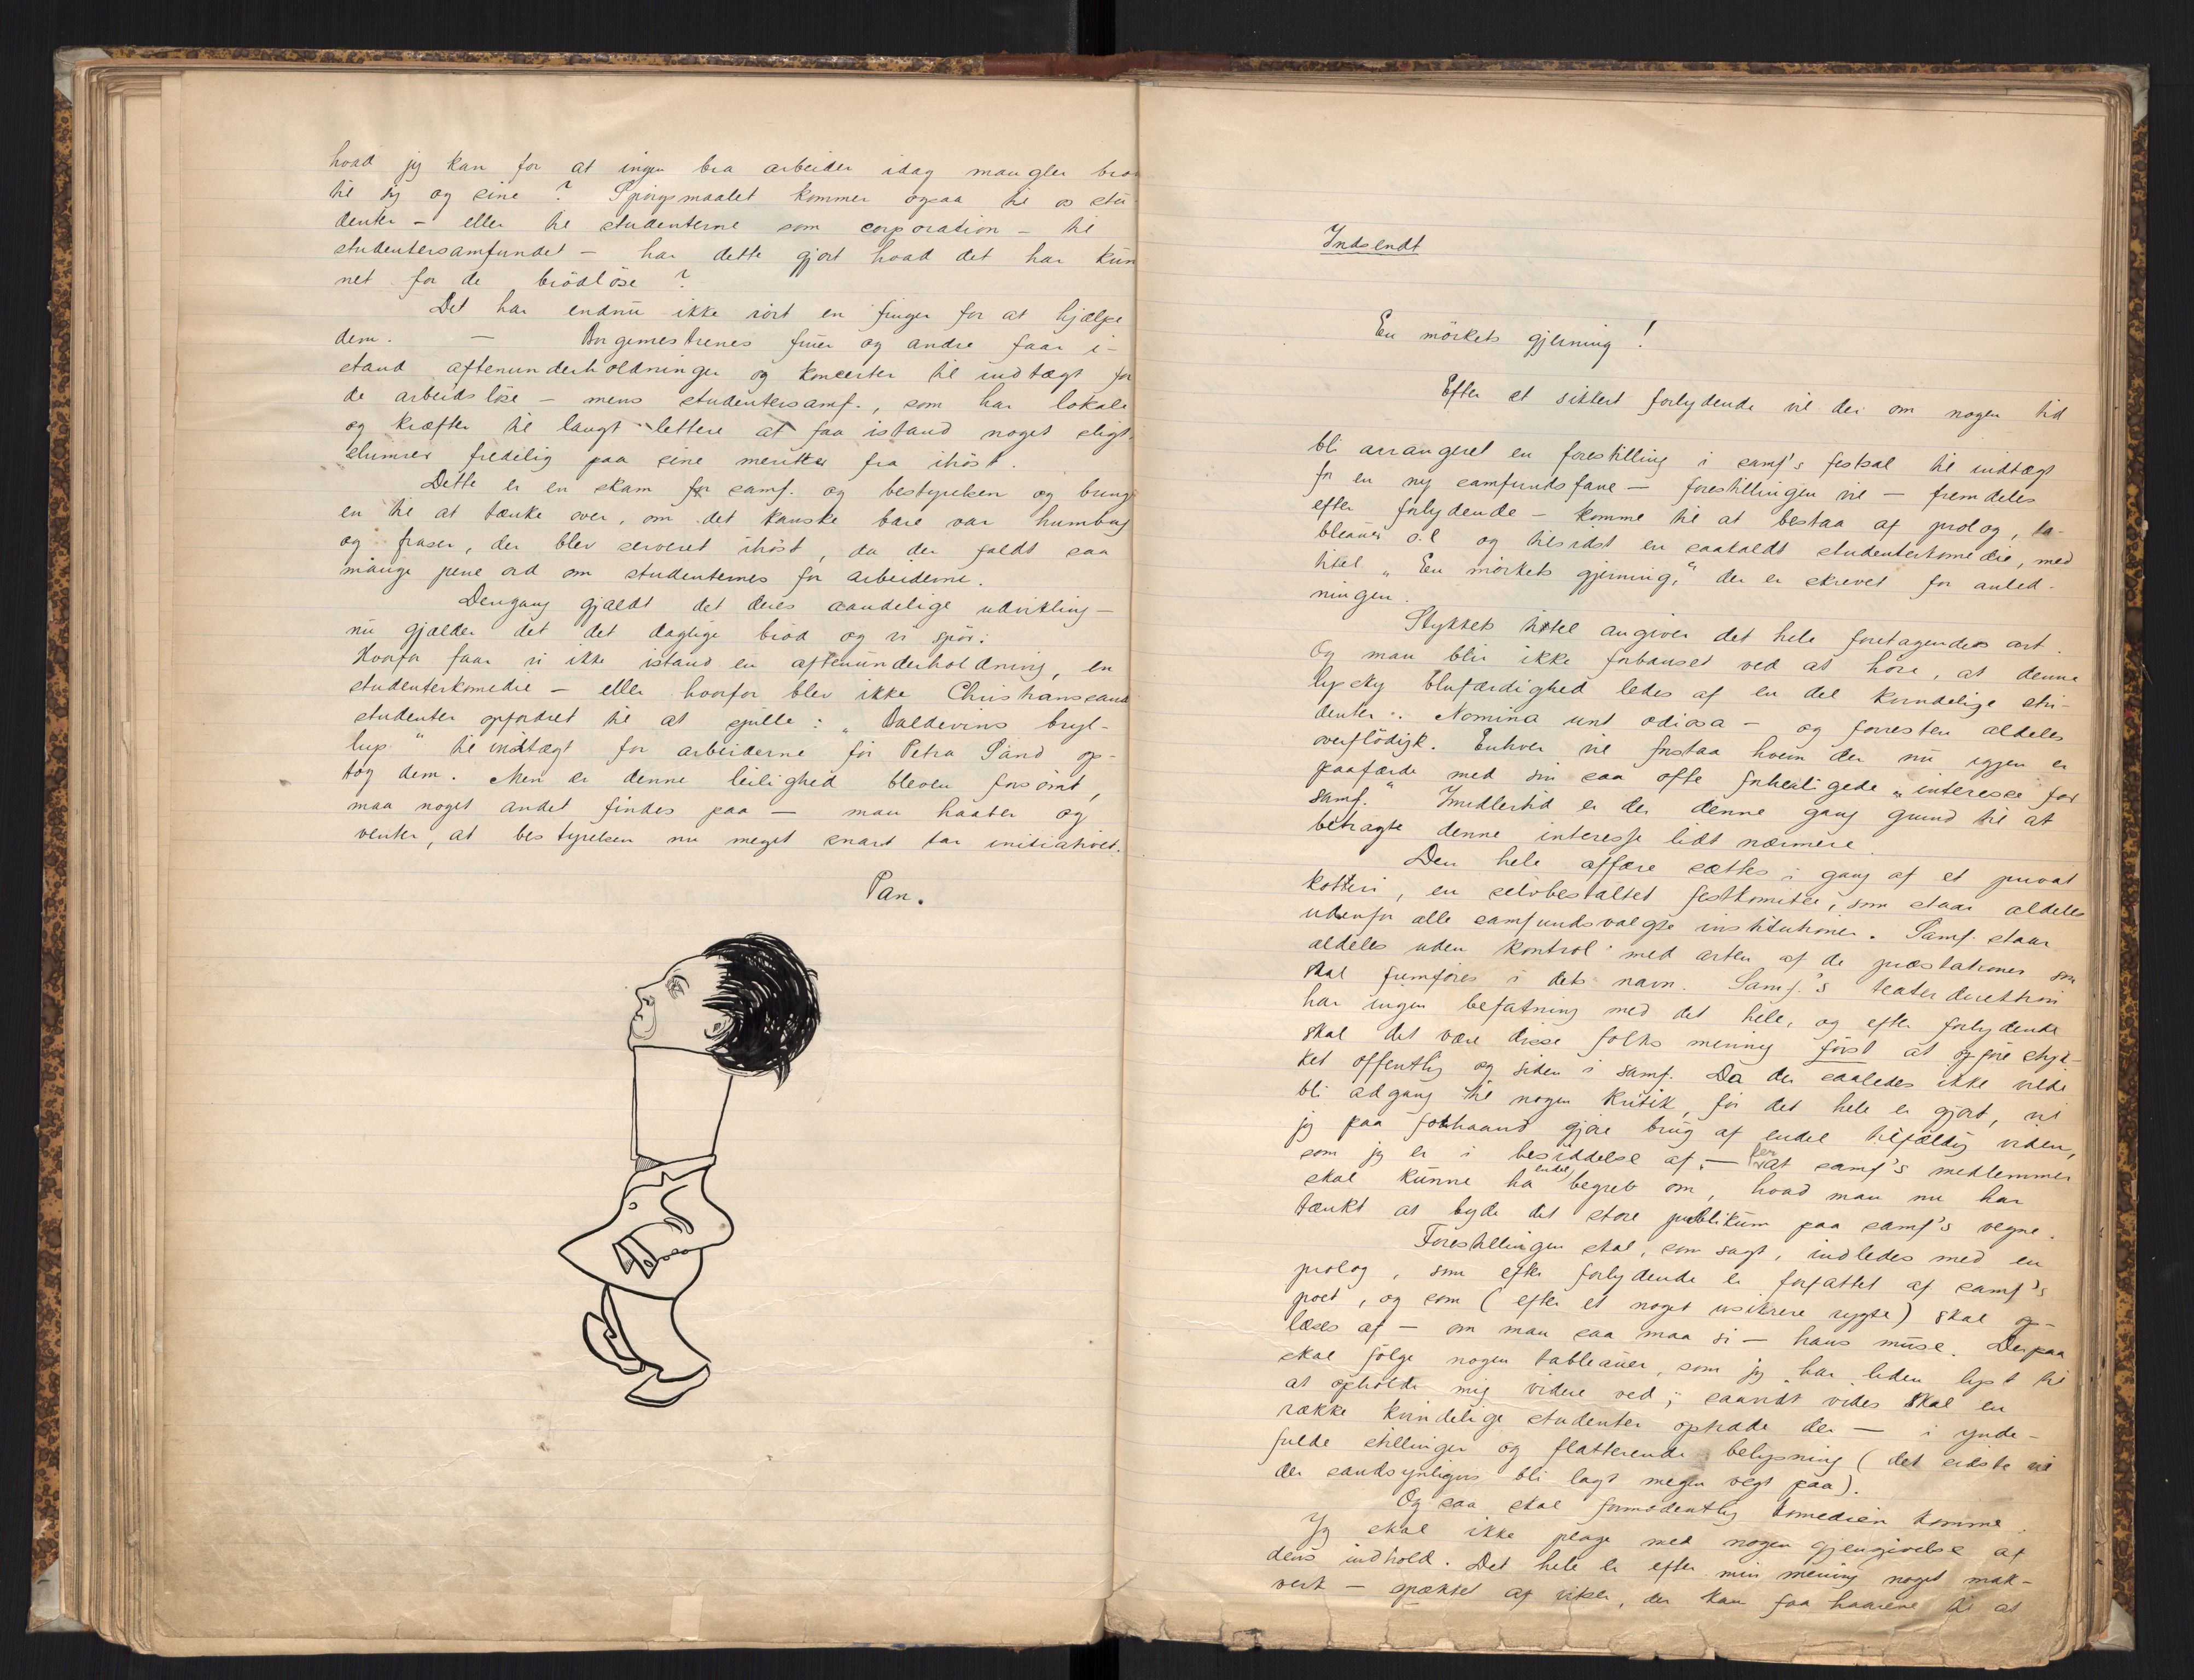 hvad jeg kan for at ingen bra arbeider idag mangler brød
til sig og sine? Spørgsmaalet kommer ogsaa til os stu-
denter – eller til studenterne som corporation – til
studentersamfundet – har dette gjort hvad det har kun
net for de brödlöse?
Det har endnu ikke rört en finger for at hjælpe
dem. — Borgemestrenes fruer og andre faar i-
stand aftenunderholdninger og koncerter til indtægt for
de arbeidslöse – mens studentersamf., som har lokale
og kræfter til langt lettere at faa istand noget sligt,
slumrer fredelig paa sine meritter fra ihöst.
Dette er en skam for samf. og bestyrelsen og bring
en til at tænke over, om det kanske bare var humbug
og fraser, der blev serveret ihöst, da der faldt saa
mange pene ord om studenternes for arbeiderne.
Dengang gjældt det deres aandelige udvikling –
nu gjælder det det daglige bröd og vi spör:
Hvorfor faar vi ikke istand en aftenunderholdning, en
studenterkomedie – eller hvorfor blev ikke Christianssand
studenter opfordret til at spille: „Baldevins bryl-
lup" til indtægt for arbeiderne för Petra Sand op-
tog dem. Men er denne leilighed bleven forsömt,
maa noget andet findes paa – man haaber og
venter, at bestyrelsen nu meget snart tar initiativet.
Pan.
Indsendt
En mörkets gjerning!
Efter et sikkert forlydende vil der om nogen tid
bli arrangeret en forestilling i samf's festsal til indtægt
for en ny samfundsfane – forestillingen vil – fremdeles
efter forlydende – komme til at bestaa af prolog, ta-
bleauer o.l og tilsidst en saakaldt studenterkomedie, med
titel „En mörkets gjerning," der er skrevet for anled-
ningen.
Stykkets titel angiver det hele foretagendes art.
Og man blir ikke forbauset ved at höre, at denne
lyssky blufærdighed ledes af en del kvindelige stu-
denter. Nomina sunt odiosa – og forresten aldeles
overflödigt. Enhver vil forstaa hvem der nu igjen er
paafærde med sin saa ofte forherligede „interesse for
samf." Imidlertid er der denne gang grund til at
betragte denne interesse lidt nærmere.
Den hele affære sættes i gang af et privat
kotteri, en selvbestaltet festkomitee, som staar aldeles
udenfor alle samfundsvalgte institutioner. Samf. staar
aldeles uden kontrol med arten af de præstationer som
skal fremföres i dets navn. Samf.'s teaterdirektion
har ingen befatning med det hele, og efter forlydende
skal det være disse folks mening først at opföre styk-
ket offentlig og siden i samf. Da der saaledes ikke vilde
bli adgang til nogen kritik, för det hele er gjort, vil
jeg paa forhaand gjöre brug af endel tilfældig viden,
som jeg er i besiddelse af, – for at samf's medlemmer
skal kunne ha endel begreb om, hvad man nu har
tænkt at byde det store publikum paa samf's vegne.
Forestillingen skal, som sagt, indledes med en
prolog, som efter forlydende er forfattet af samf's
poet, og som (efter et noget usikrere rygte) skal op-
læses af – om man saa maa si – hans muse. Derpaa
skal fölge nogen tableauer, som jeg har liden lyst til
at opholde mig videre ved; saavidt vides skal en
række kvindelige studenter optræde der – i ynde-
fulde stillinger og flatterende belysning (det sidste vil
der sandsynligvis bli lagt megen vegt paa).
Og saa skal formodentlig komedien komme.
Jeg skal ikke plage med nogen gjengivelse af
dens indhold. Det hele er efter min mening noget mak-
verk – spækket af vitser, der kan faa haarene til at